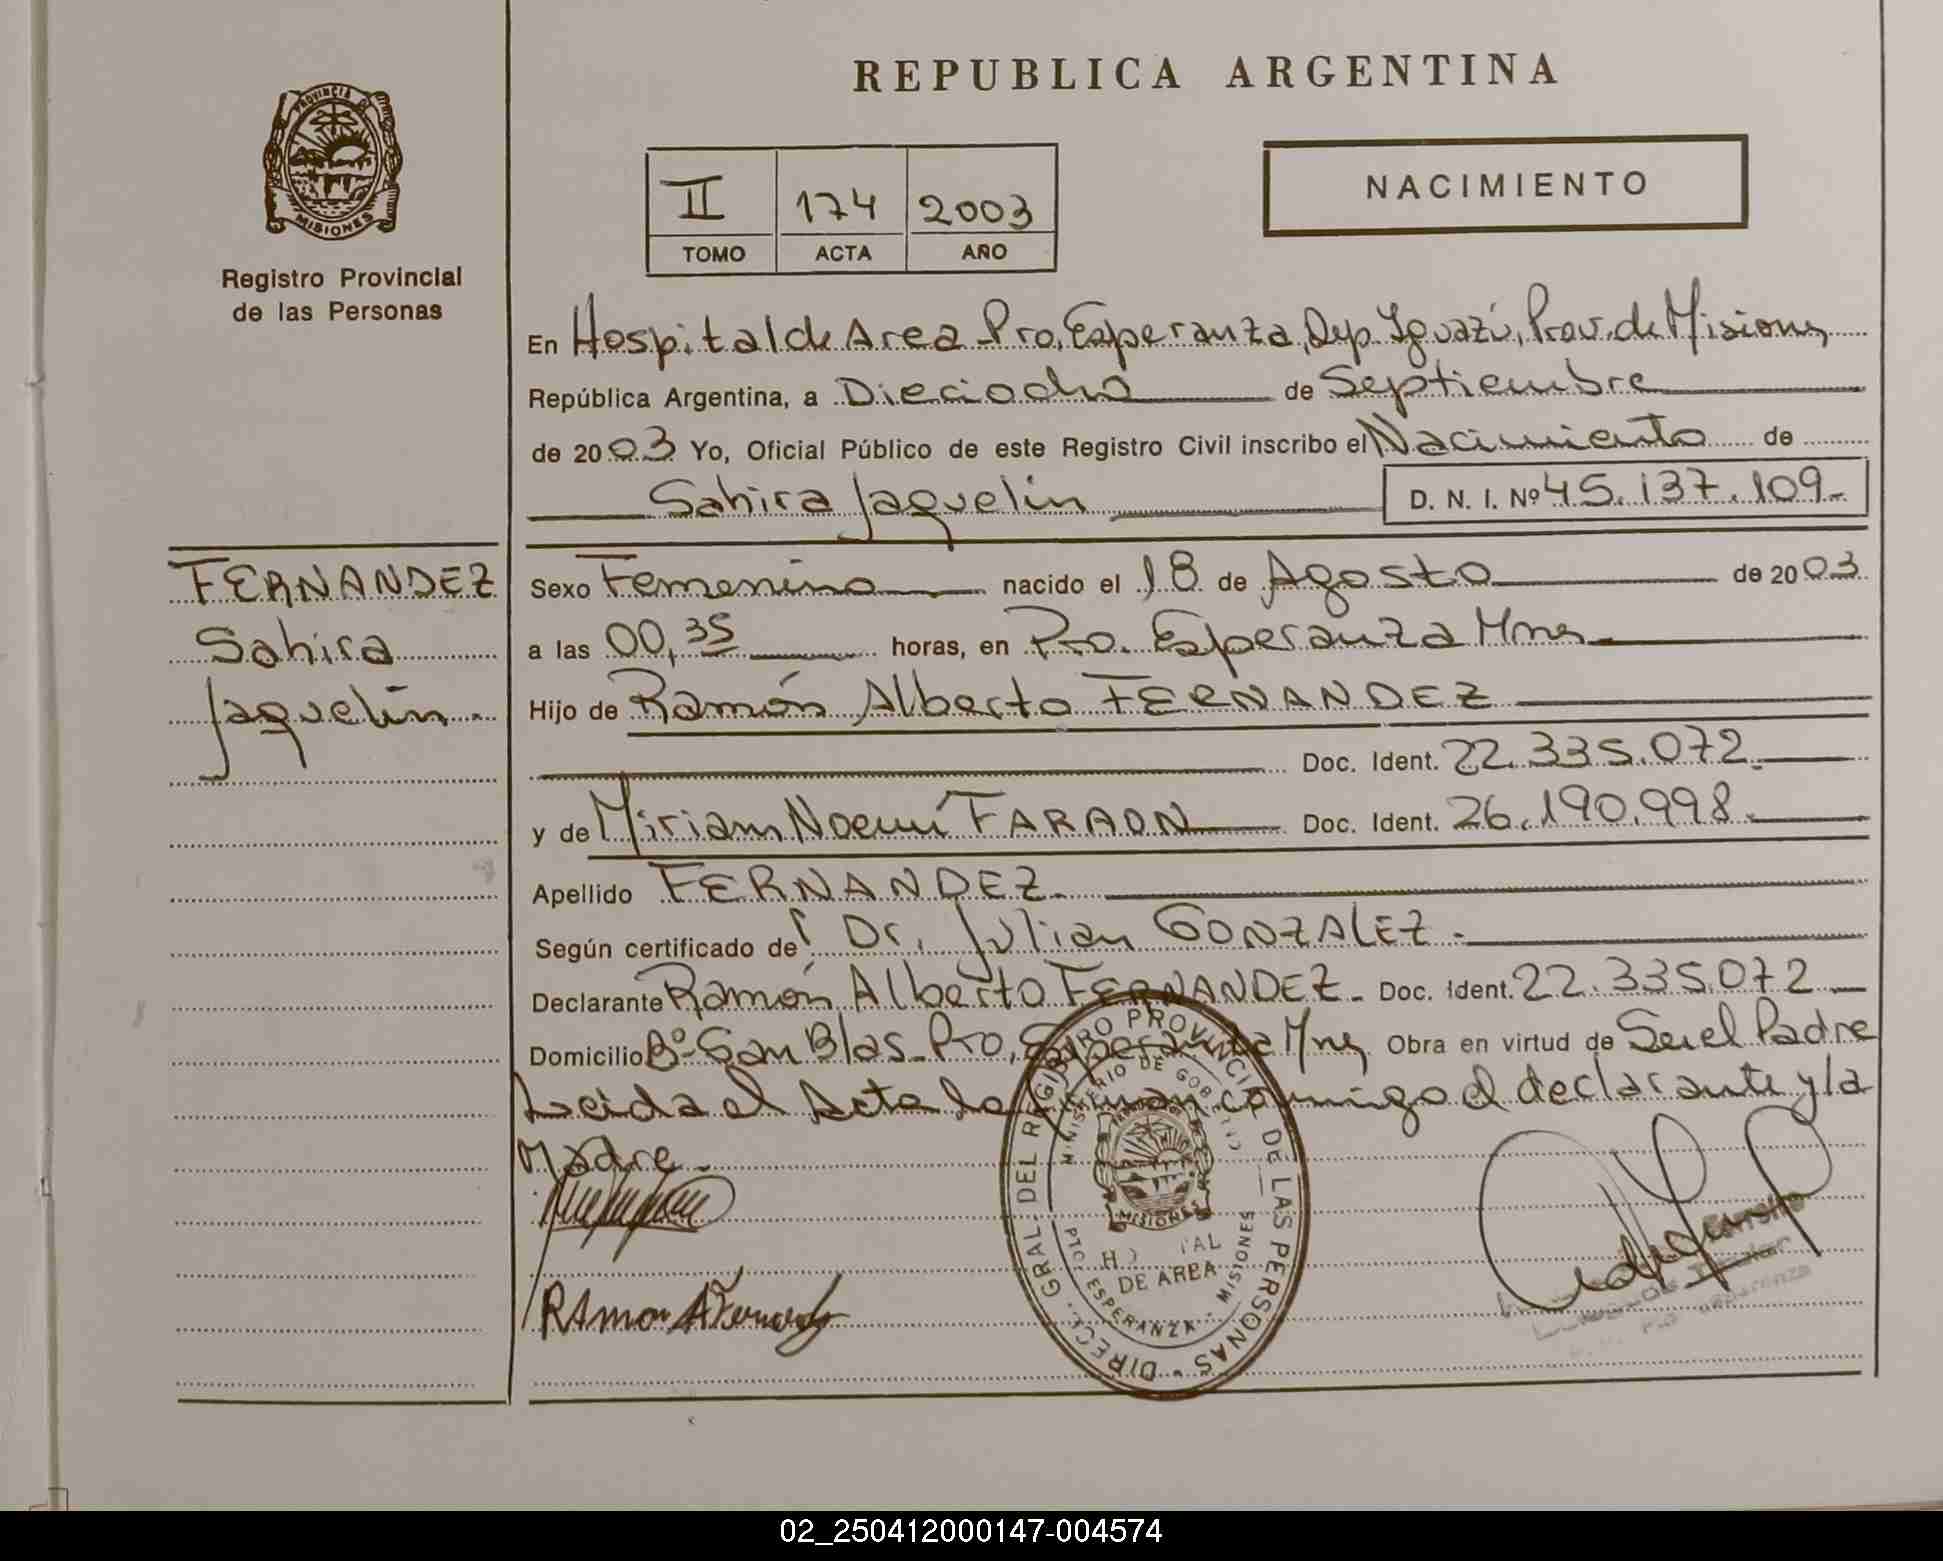 REPUBLICA ARGENTINA
PROVINCIA DE
MISIONES
Registro Provincial
de las Personas
II 174 2003
TOMO ACTA AÑO
NACIMIENTO
En Hospital de Area Pto. Esperanza, Dep. Iguazú, Prov. de Misiones
República Argentina, a Dieciocho de Septiembre
de 2003 Yo, Oficial Público de este Registro Civil inscribo el Nacimiento de
Sahira Jaquelin D. N. I. Nº 45.137.109.-
FERNANDEZ
Sahira
Jaquelin.
Sexo Femenino nacido el 18 de Agosto de 2003
a las 00,35 horas, en Pto. Esperanza Mnes
Hijo de Ramón Alberto FERNANDEZ
Doc. Ident. 22.335.072.
y de Miriam Noemí FARAON Doc. Ident. 26.190.998.
Apellido FERNANDEZ.
Según certificado de Dr. Julian GONZALEZ.
Declarante Ramón Alberto FERNANDEZ. Doc. Ident. 22.335.072
Domicilio Bº San Blas Pto. Esperanza Mnes Obra en virtud de Ser el Padre
Leida el Acta la firman conmigo el declarante y la
Madre.
Ramon A Fernandez
DIRECC. GRAL. DEL REGISTRO PROVINCIAL DE LAS PERSONAS
MINISTERIO DE GOBIERNO
MISIONES
DE AREA
PTO. ESPERANZA - MISIONES
02_250412000147-004574